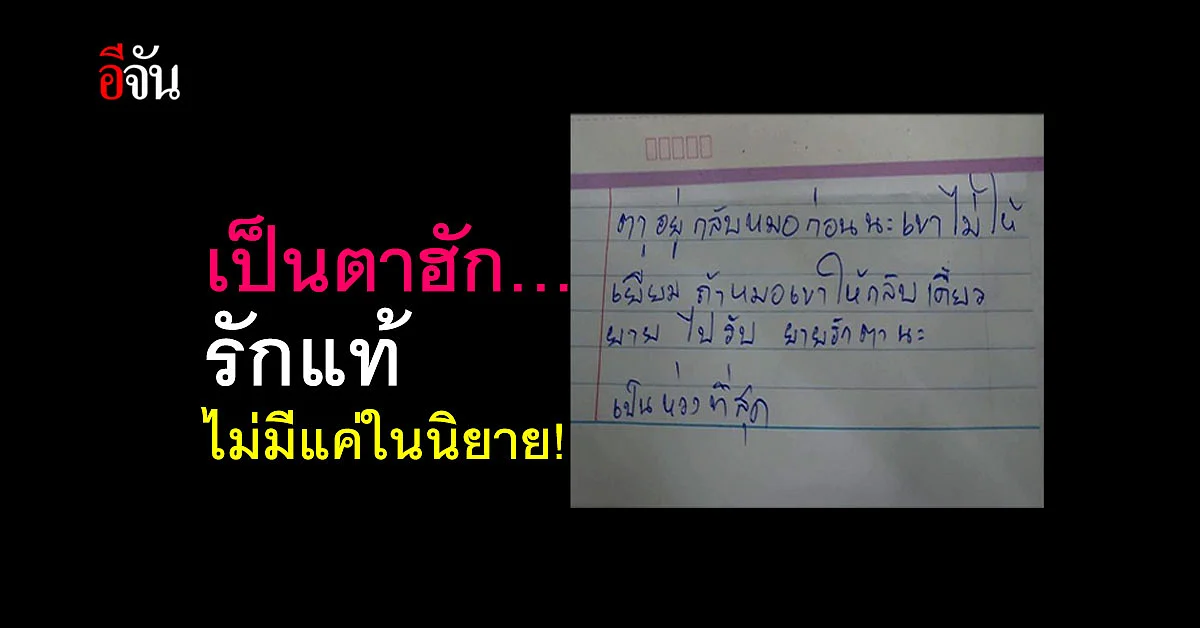 อีจัน
เป็นตาฮัก...
รักแท้
ไม่มีแค่ในนิยาย!
ตาอยู่กลับหมอก่อนนะเขาไม่ให้
เยี่ยม ถ้าหมอเขาให้กลับเดี๋ยว
ยาย ไปรับ ยายรักตานะ
เป็นห่วงที่สุด